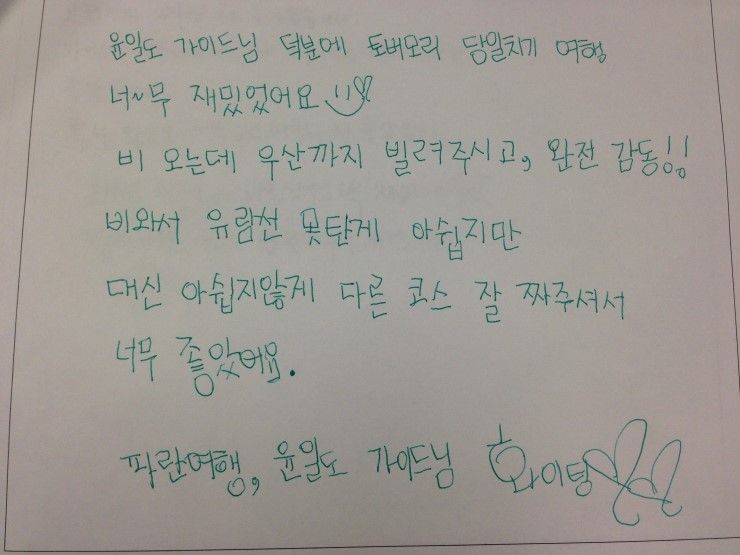 윤일도 가이드님 덕분에 토버모리 당일치기 여행
너~무 재밌었어요
비 오는데 우산까지 빌려주시고, 완전 감동!!
비와서 유람선 못탄게 아쉽지만
대신 아쉽지않게 다른 코스 잘 짜주셔서
너무 좋았어요.
파란여행, 윤일도 가이드님 화이팅